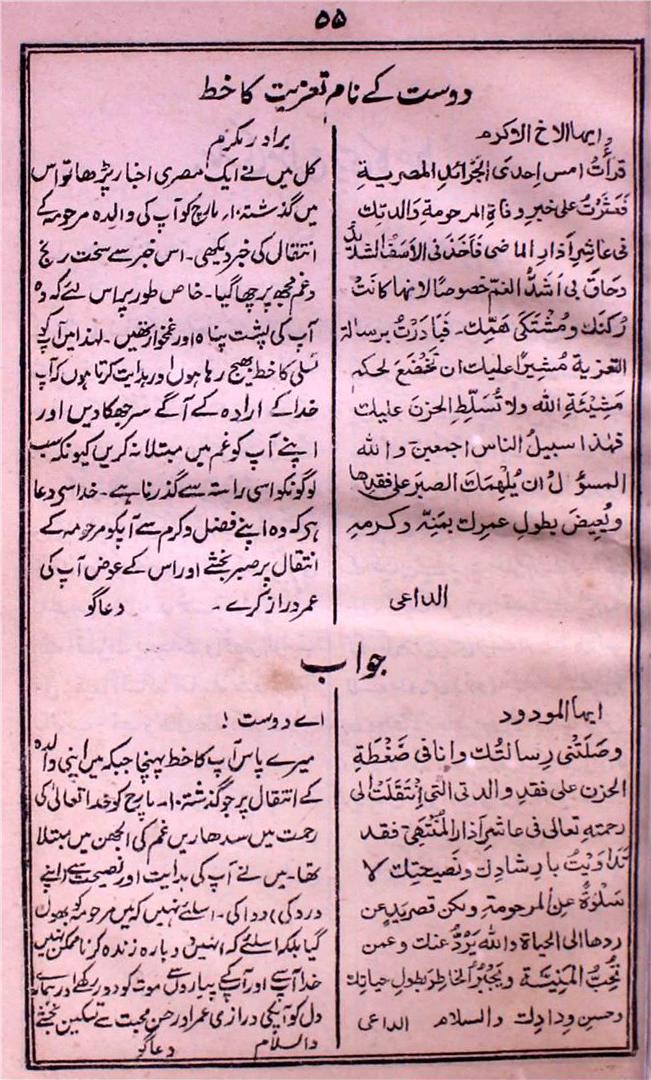 ۵۵
دوست کے نام تعزیت کا خط
ایها الاخ الاکرم
قرأتُ امس اِحدی الجَرائدِ المصریة
فَعَثَرْتُ علی خبرِ وفاةِ المرحومةِ والدتِك
فی عاشرِ اٰدار الماضی فَأخذَنی الأسَفُ الشدیدُ
وحَاقَ بی أشدُّ الغمِّ خصوصًا لانها کانتْ
رُکنَك ومُشْتَکَی هَمِّك۔ فَبادَرْتُ برسالة
التعزیة مُشیرًا علیك ان تَخْضَعَ لحکمِ
مَشِیْئَةِ الله ولا تُسَلِّطِ الحزنَ علیك
فهٰذا سبیلُ الناس اجمعین والله
المسؤلُ ان یُلْهِمَكَ الصبرَ علی فقدِها
ویُعِیضَ بطولِ عمرِك بمَنِّهٖ وکرمهٖ
الداعی
برادر مکرم
کل میں نے ایک مصری اخبار پڑھا تو اس
میں گذشتہ ۱۰ مارچ کو آپ کی والدہ مرحومہ کے
انتقال کی خبر دیکھی۔ اس خبر سے سخت رنج
وغم مجھ پر چھا گیا۔ خاص طور پر اس لئے کہ وہ
آپ کی پشت پناہ اور غمخوار تھیں۔ لہذا میں آپ کو
تسلی کا خط بھیج رہا ہوں اور ہدایت کرتا ہوں کہ آپ
خدا کے ارادہ کے آگے سر جھکا دیں اور
اپنے آپ کو غم میں مبتلا نہ کریں کیونکہ سب
لوگونکو اسی راستہ سے گذرنا ہے۔ خدا سی دعا
ہی کہ وہ اپنے فضل وکرم سے آپکو مرحومہ کے
انتقال پر صبر بخشے اور اس کے عوض آپ کی
عمر دراز کرے۔ دعاگو
جواب
ایها المودود
وصَلَتْنی رِسالتُك وانا فی ضَغْطَةِ
الحزن علی فقدِ والدتی التی اِنْتَقَلَتْ الی
رحمتهٖ تعالی فی عاشرِ اٰذار المُنْتَهِیْ فقد
تَدَاوَیْتُ بارشادِك ونَصیحتِك لا
سَلْوَةً عنِ المرحومةِ ولکن قصرَیدِیْ عن
ردِّها الی الحیاة والله یَرُدُّ عنك وعمن
تُحِبُّ المَنِیَّةَ ویَجْبُرُ الخاطرَ بطولِ حیاتِك
وحسنِ ودادِك والسلام الداعی
اے دوست!
میرے پاس آپ کا خط پہنچا جبکہ میں اپنی والدہ
کے انتقال پر جو گذشتہ ۱۰۔ مارچ کو خدا تعالیٰ کی
رحمت میں سدھاریں غم کی الجھن میں مبتلا
تھا۔ میں نے آپ کی ہدایت اور نصیحت سے اپنے
درد کی) دوا کی۔ اسلئے نہیں کہ میں مرحومہ کو بھول
گیا بلکہ اسلئے کہ انہیں دوبارہ زندہ کرنا ممکن نہیں
خدا آپ سے اور آپکے پیاروں سے موت کو دور رکھے اور ہمارے
دل کو آپکی درازی عمر اور حسن محبت سے تسکین بخشے
والسلام دعاگو